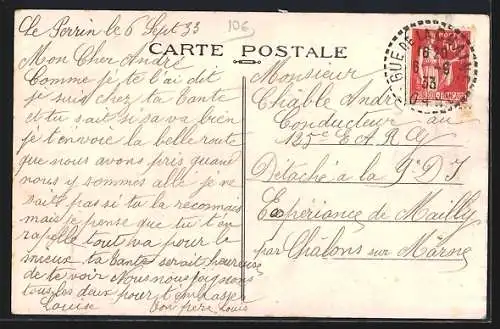 Le Perrin le 6 Sept 33
106
CARTE POSTALE
Mon Cher André
Comme je te l'ai dit
je suis chez ta tante
et tu sait si sa va bien
je t'envoie la belle route
que nous avons pris quand
nous y sommes allé je ne
sais pas si tu la reconnais
mais je pense que tu t'en
rapelle tout va pour le
mieux ta tante serait heureuse
de te voir Nous nous joignons
tous les deux pour t'embrasser
Louise Ton frère Louis
Monsieur
Chable André
Conducteur au
185e E A R G
Détaché à la 9e D I
Expériance de Mailly
par Châlons sur Marne
GUE DE LA
16 30
6 - 9
33